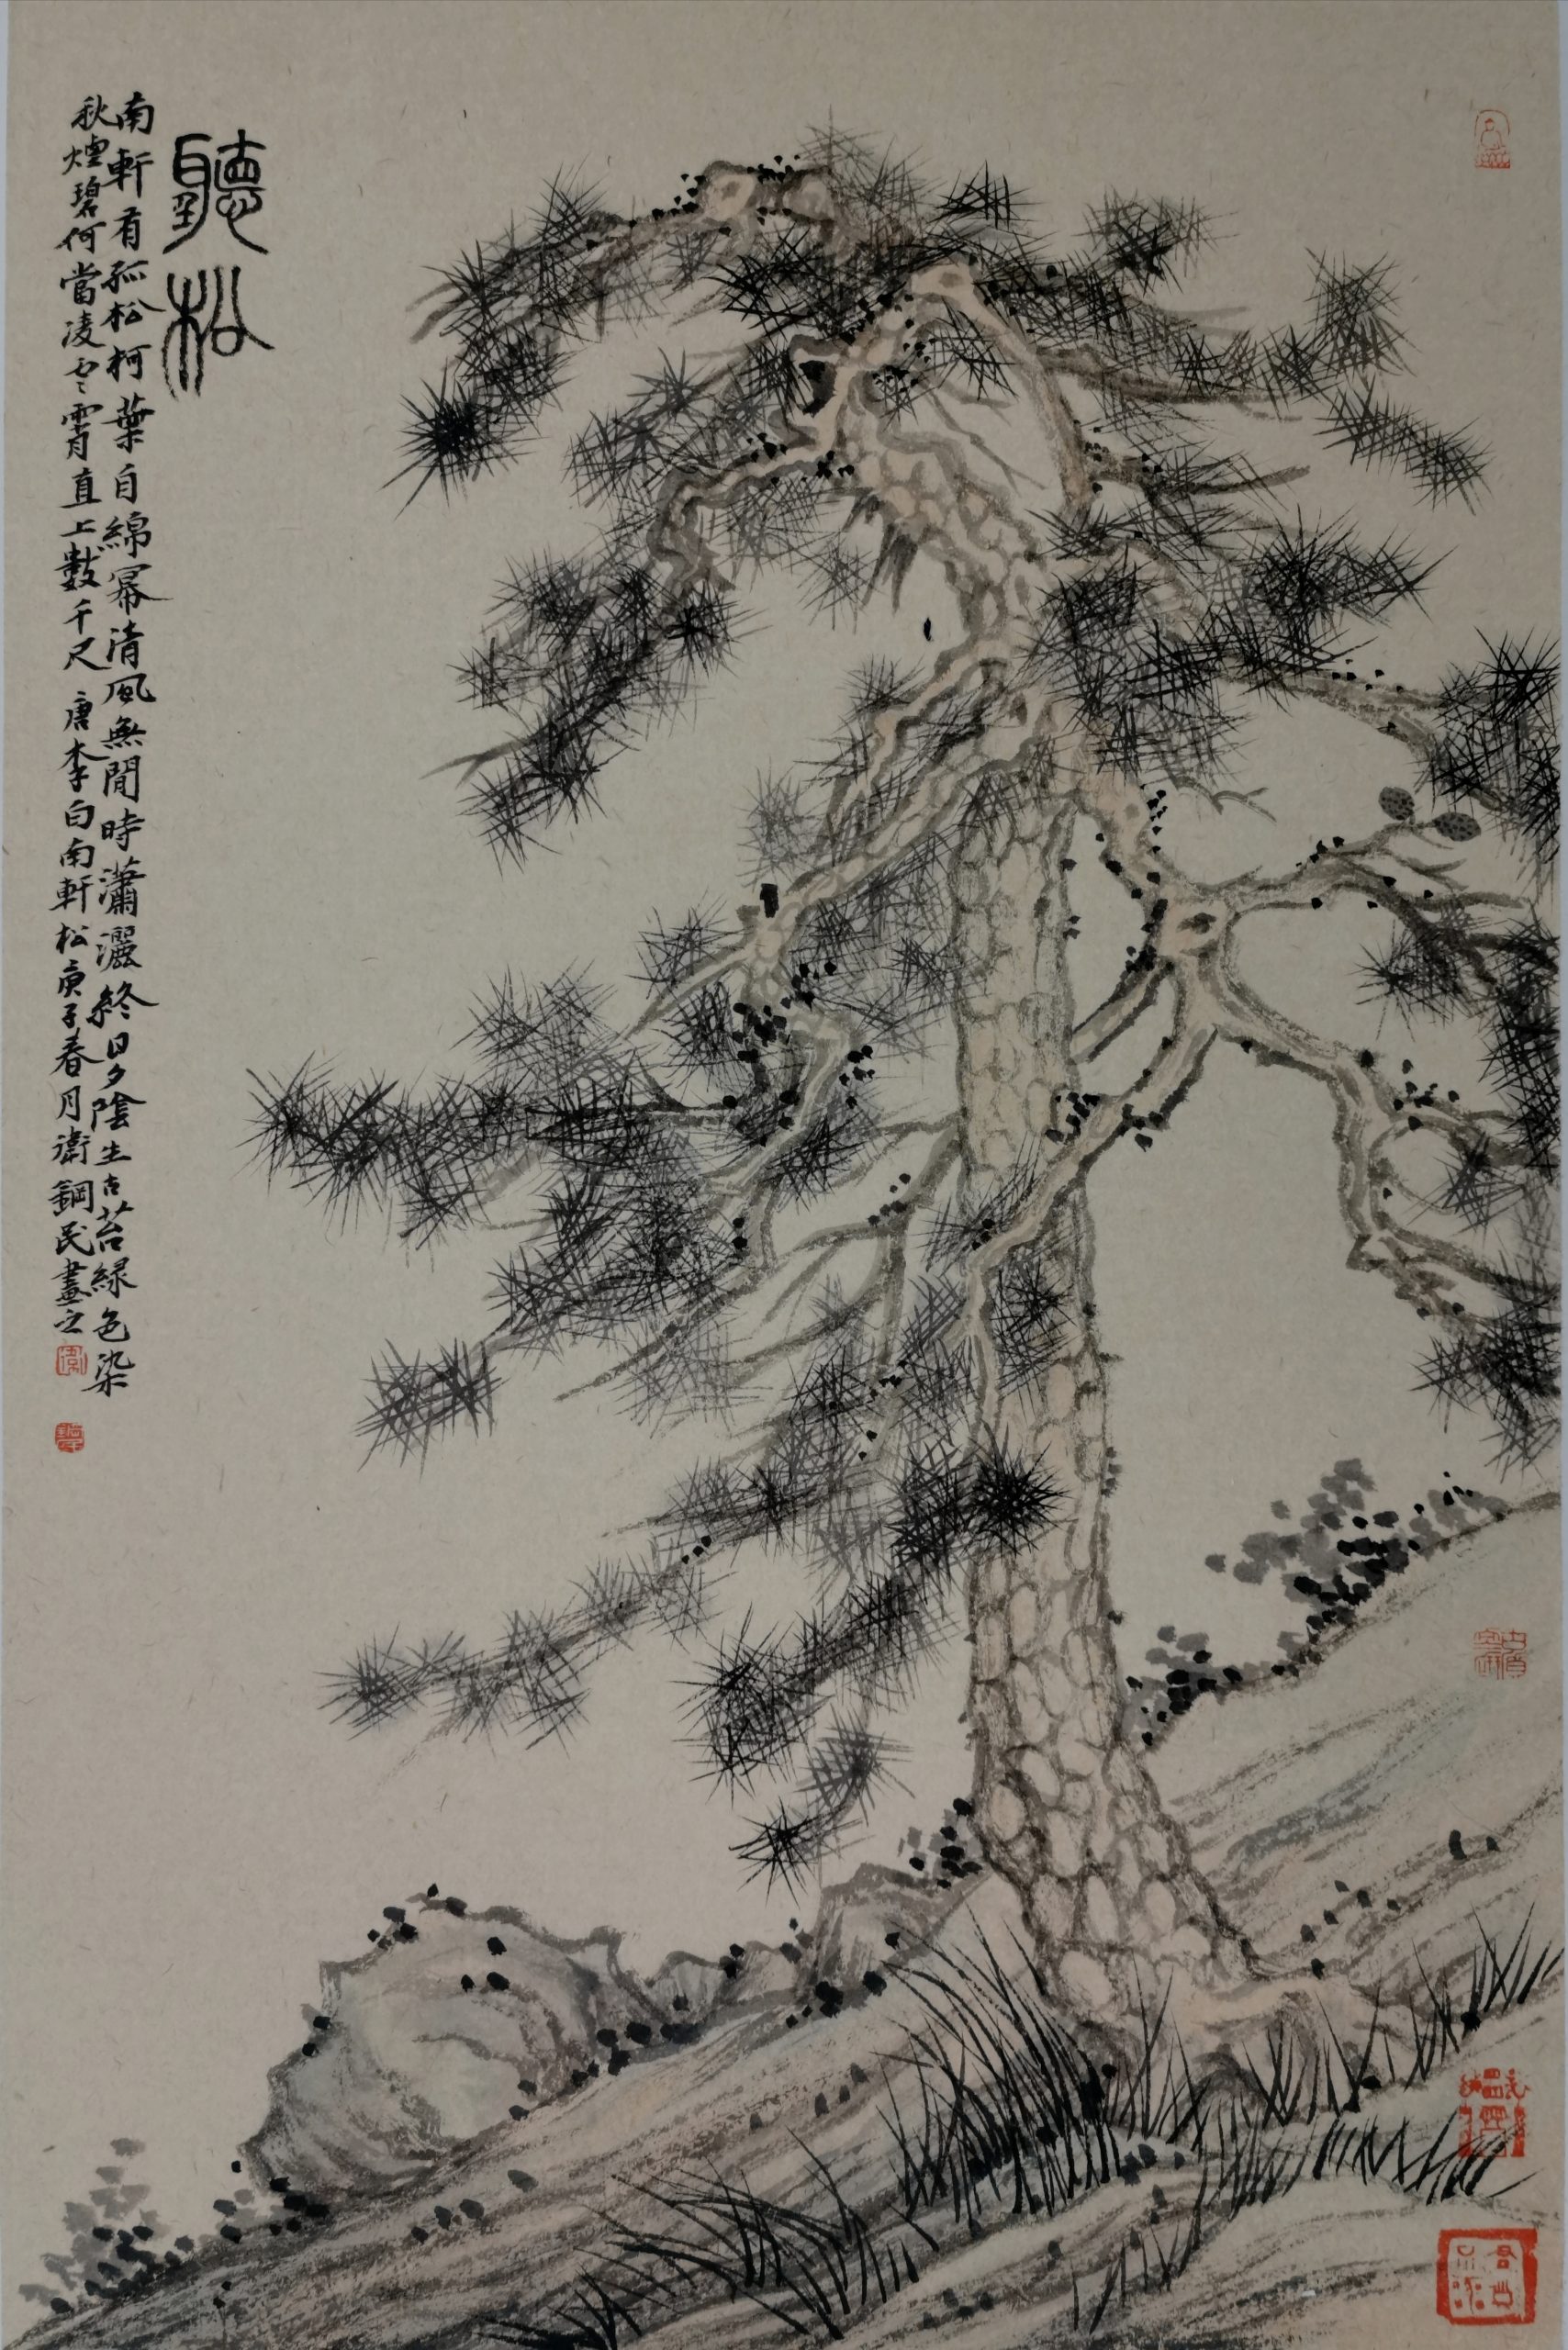 聽松
南軒有孤松柯葉自綿冪清風無閒時瀟灑終日夕陰生古苔綠色染
秋煙碧何當凌雲霄直上數千尺 唐李白南軒松庚子春月衛鋼民畫之